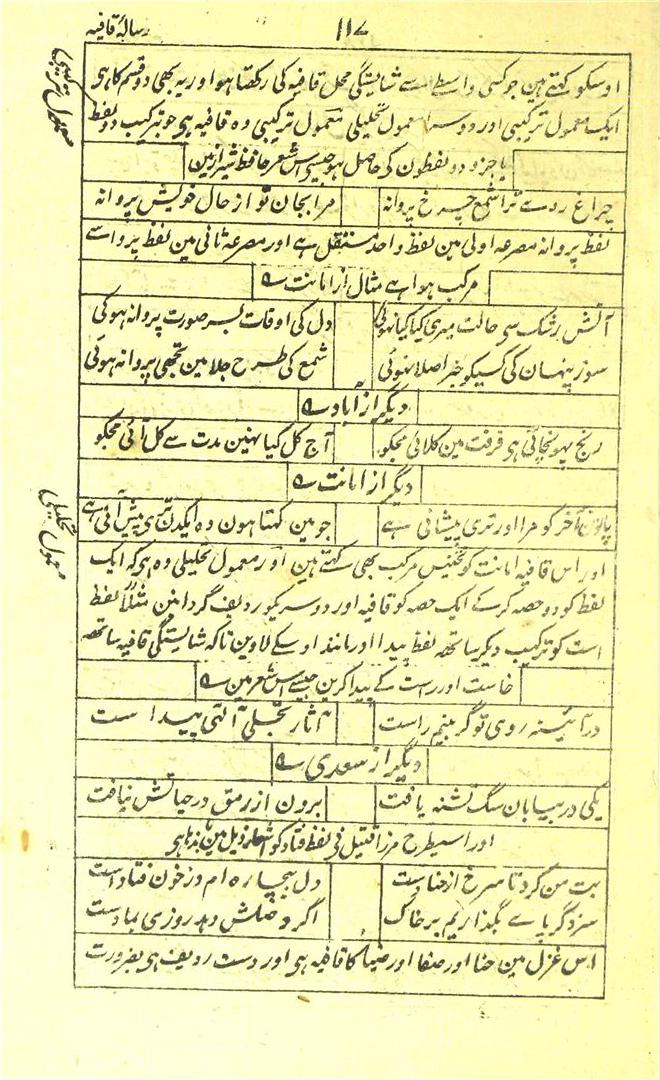 رسالۂ قافیہ
۱۱۷
اوسکو کہتے ہین جو کسی واسطے سے شایستگی محل قافیہ کی رکھتا ہو اور یہ بھی دو قسم کا ہی
معمول ترکیبی
ایک معمول ترکیبی اور دوسرا معمول تحلیلی معمول ترکیبی وہ قافیہ ہی جو ترکیب دو لفظ
یا جزو دو لفظون کی حاصل ہو جیسے اس شعر حافظ شیراز مین
چراغ روے ترا شمع چرخ پروانہ مرا بجان تو از حال خویش پروانہ
لفظ پروانہ مصرعہ اولی مین لفظ واحد مستقل ہے اور مصرعہ ثانی مین لفظ پروا سے
مرکب ہوا ہے مثال از امانت ے
آتش رشک سی حالت میری کیا کیا نہوئی دل کی اوقات بسر صورت پروانہ ہوئی
سوز پنہان کی کسیکو خبر اصلا نہوئی شمع کی طرح جلا مین تجھی پروا نہ ہوئی
دیگر از آباد ے
رنج پہونچاتی ہی فرقت مین کلائی مجکو آج کل کیا نہین مدت سے کل آئی مجکو
دیگر از امانت ے
معمول تحلیلی
آخر کو مرا اور تری پیشانی ہے جو مین کہتا ہون وہ ایکدن تری پیش آنی ہے
اور اس قافیہ امانت کو تجنیس مرکب بھی کہتے ہین اور معمول تحلیلی وہ ہی کہ ایک
لفظ کو دو حصہ کرکے ایک حصہ کو قافیہ اور دوسریکو ردیف گردانین مثلاً لفظ
است کو ترکیب دیکر ساتھہ لفظ پیدا اور مانند اوسکے لاوین تاکہ شایستگی قافیہ ساتھہ
خاست اور راست کے پیدا کرین جیسے اس شعر مین ے
در آئینہ روی تو گر بینم راست آثار تجلی آلہی پیدا ست
دیگر از سعدی ے
یکی در بیابان سگ تشنہ یافت برون از رمق در حیاتش نیافت
اور اسیطرح مرزا قتیل نی لفظ فتاد کو اشعار ذیل مین باندہا ہی
بت من گرد تا سرخ از حنا دست دل بیچارہ ام در خون فتادست
سزد گر پاے بگذاریم بر خاک اگر وصلش دہد روزی بما دست
اس غزل مین حنا اور صفا اور ضیا کا قافیہ ہی اور دست ردیف ہی بضرورت